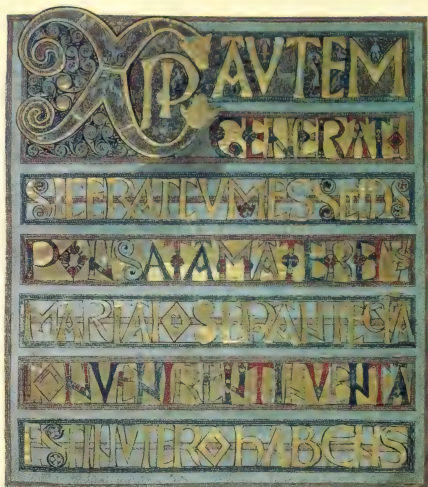 XPI AVTEM
GENERATIO
SIC ERAT CVM ESSET DIS
PONSATA MATER EIVS
MARIA IOSEP ANTEQVA
CONVENIRENT INVENTA
EST IN VTERO hABENS